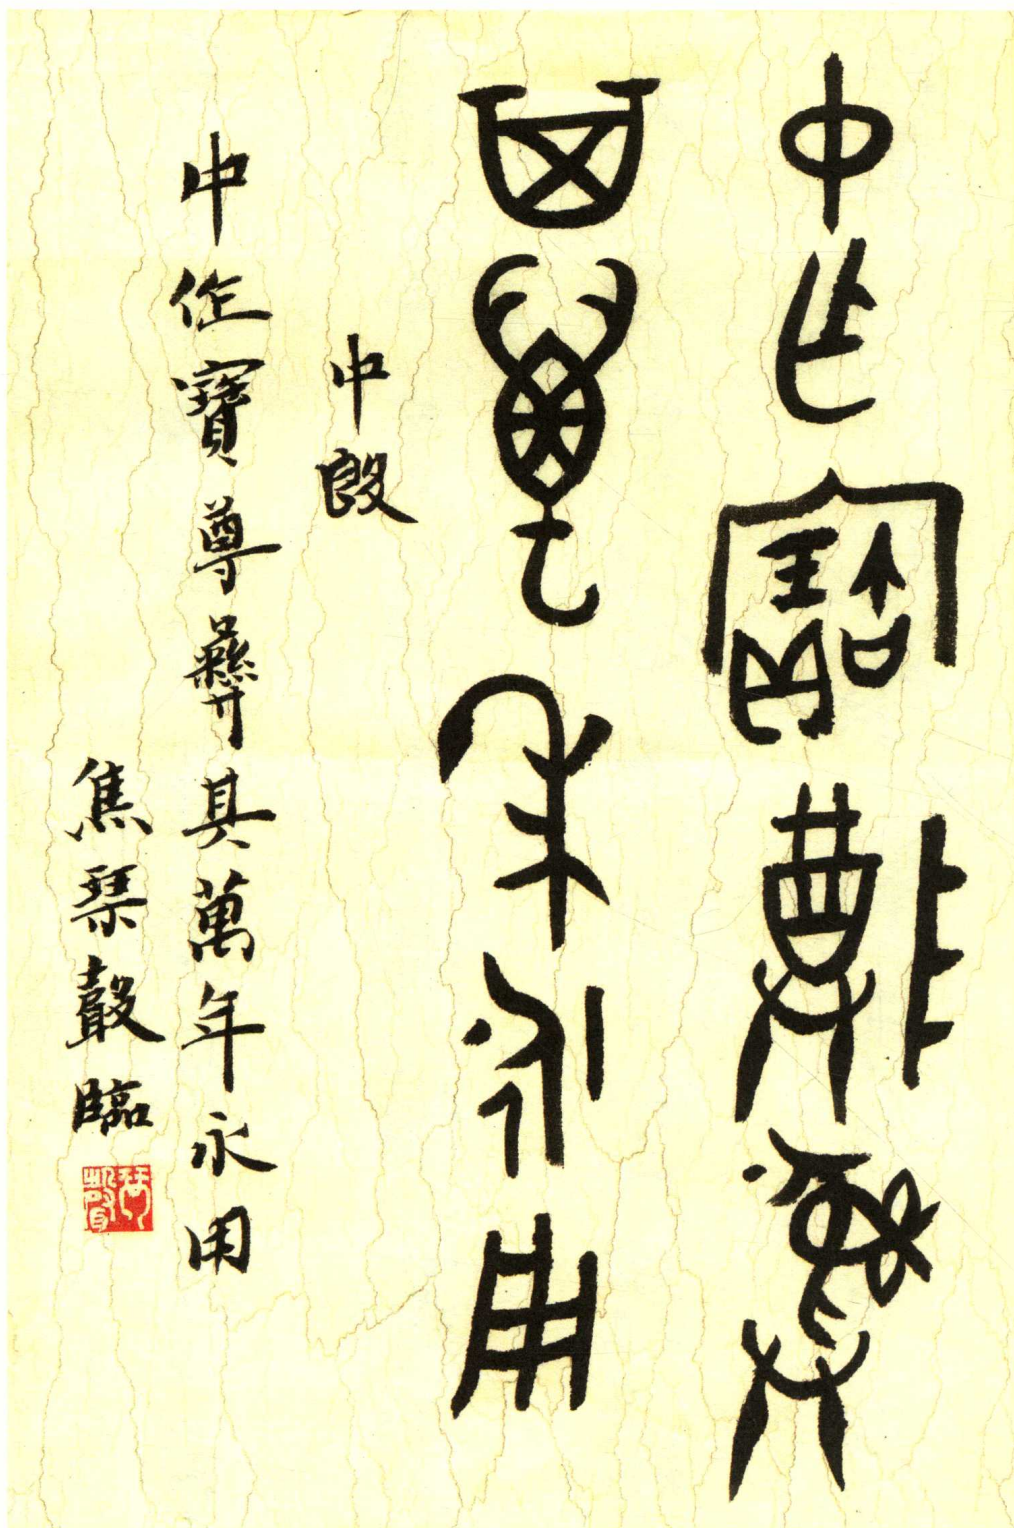 中乍寶尊彝
其萬年永用
中𣪘
中作寶尊彝其萬年永用
焦琹嗀臨